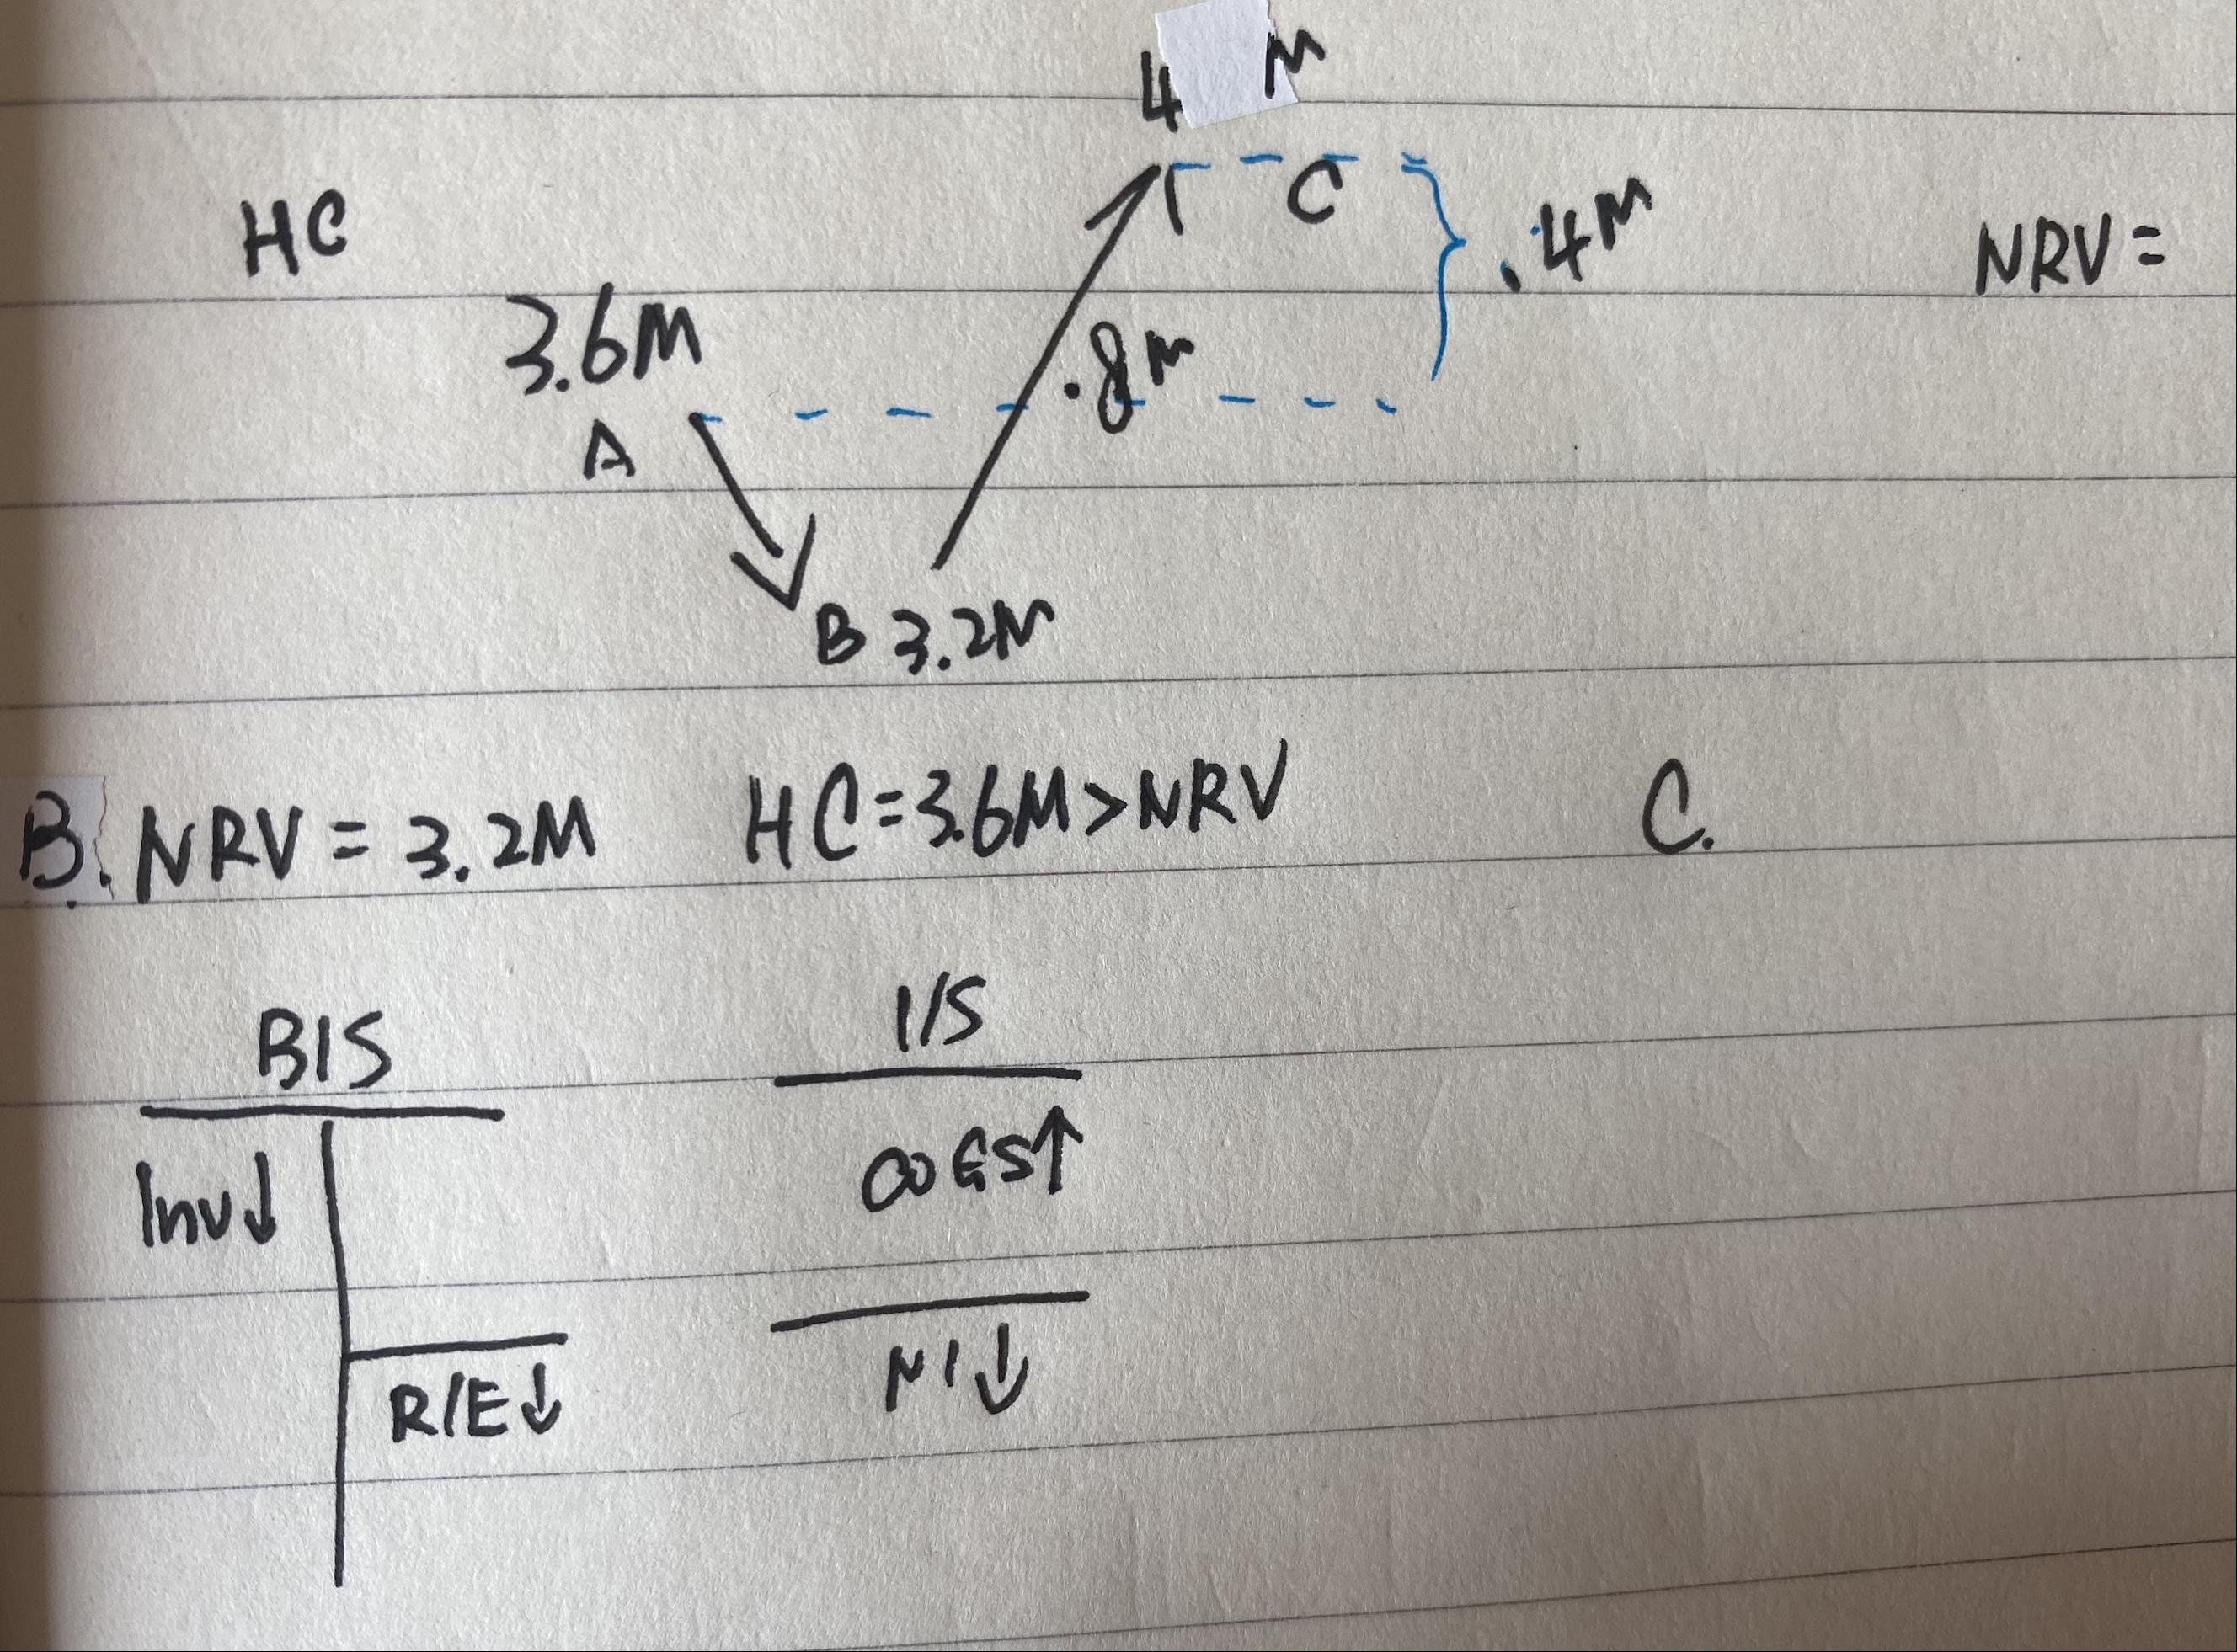 4 M
HC
C
.4M
NRV=
3.6M
.8M
A
B 3.2M
B. NRV = 3.2M HC=3.6M>NRV C.
B/S I/S
Inv↓ COGS↑
R/E↓ NI↓